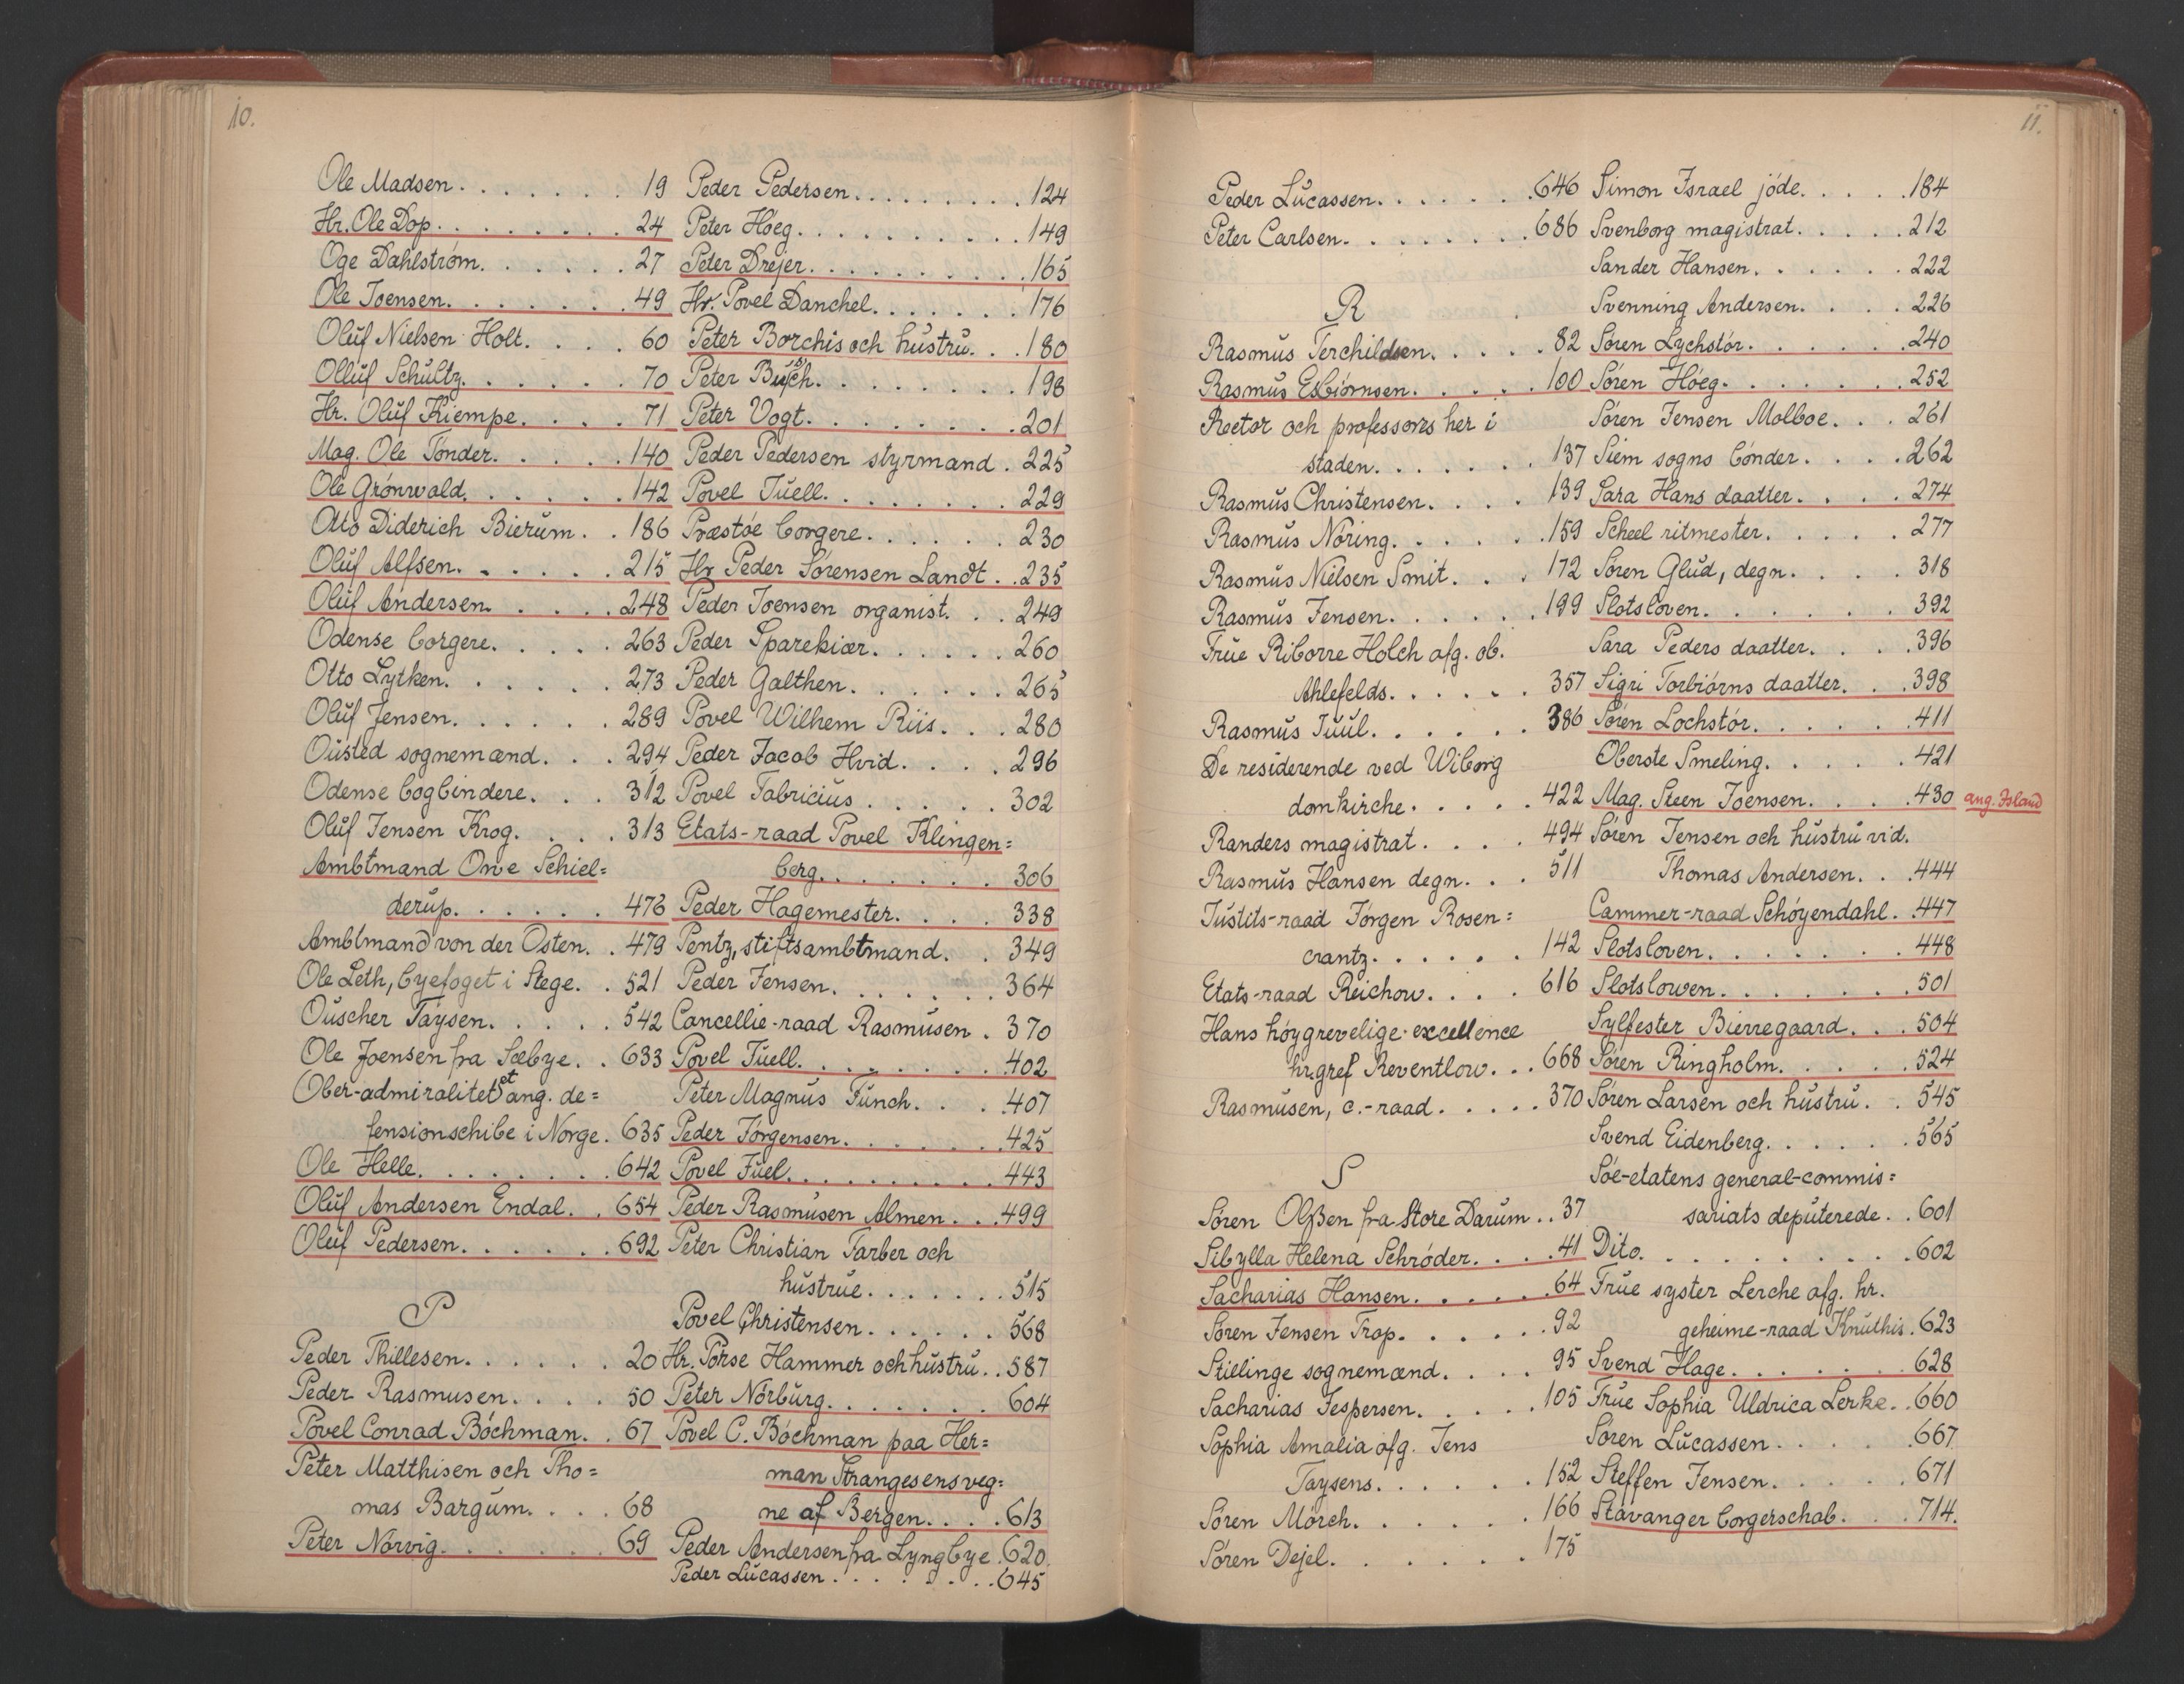 10.
Ole Madsen. . . . . . . 19
Hr. Ole Dop. . . . . . . . 24
Oge Dahlström. . . . . . 27
Ole Joensen. . . . . . . 49
Oluf Nielsen Holt. . . . 60
Olluf Schultz. . . . . . 70
Hr. Oluf Kiempe. . . . 71
Mag. Ole Tönder. . . . . 140
Ole Grönwald. . . . . . 142
Otto Diderich Bierum. . 186
Oluf Alfsen. . . . . . 215
Oluf Andersen. . . . . 248
Odense borgere. . . . . 263
Otto Lytken. . . . . . 273
Oluf Jensen. . . . . . 289
Ousted sognemænd. . . 294
Odense bogbindere. . . 312
Oluf Jensen Krog. . . . 313
Ambtmand Owe Schiel=
derup. . . . . . 476
Ambtmand von der Osten. . 479
Ole Leth, byefoget i Stege. . 521
Ouscher Taysen. . . . . 542
Ole Joensen fra Sæbye. . 633
Ober-admiralitetet ang. de=
fensionschibe i Norge. 635
Ole Helle. . . . . . . . 642
Oluf Andersen Endal. . 654
Oluf Pedersen. . . . . . 692
P
Peder Thillesen. . . . . . 20
Peder Rasmusen. . . . 50
Povel Conrad Böchman. . 67
Peter Matthisen och Tho=
mas Bargum. . . . 68
Peter Nörvig. . . . . . . 69
Peder Pedersen. . . . . . . . . 124
Peter Höeg. . . . . . . . . . 149
Peter Drejer. . . . . . . . . . 165
Hr. Povel Danchel. . . . . . . 176
Peter Borchis och hustru. . . 180
Peter Busch. . . . . . . . 198
Peter Vogt. . . . . . . . . 201
Peder Pedersen styrmand . 225
Povel Juell. . . . . . . . 229
Præstöe borgere. . . . . . 230
Hr Peder Sörensen Landt. . 235
Peder Joensen organist. . . 249
Peder Sparekiær. . . . . . 260
Peder Galthen. . . . . . . 265
Povel Wilhem Riis. . . 280
Peder Jacob Hvid. . . . . 296
Povel Fabricius . . . . . 302
Etats-raad Povel Klingen=
berg. . . . . . . . 306
Peder Hagemester. . . . 338
Pentz, stiftsambtmand. . 349
Peder Jensen. . . . . . . 364
Cancellie-raad Rasmusen . 370
Povel Juell. . . . . . . . 402
Peter Magnus Funch. . . . 407
Peder Jörgensen. . . . . . . 425
Povel Juel. . . . . . . . . . 443
Peder Rasmusen Almen. . . 499
Peter Christian Farber och
hustrue. . . . . . . 515
Povel Christensen. . . . . . 568
Hr. Pörse Hammer och hustru. . 587
Peter Nörburg. . . . . . . 604
Povel C. Böchman paa Her=
man Strangesens veg=
ne af Bergen. . . . 613
Peder Andersen fra Lyngbye. 620.
Peder Lucassen. . . . . . . . 645
11.
Peder Lucassen. . . . . . . . 646
Peter Carlsen. . . . . . . . 686
R
Rasmus Terchildsen. . . . . 82
Rasmus Esbiörnsen. . . . . 100
Rector och professores her i
staden. . . . . . . 137
Rasmus Christensen. . . . 139
Rasmus Nöring. . . . . . 159
Rasmus Nielsen Smit. . . 172
Rasmus Jensen. . . . . . 199
Frue Riborre Holch afg. ob.
Ahlefelds. . . . . . 357
Rasmus Juul. . . . . . . 386
De residerende ved Wiborg
domkirche. . . . . 422
Randers magistrat. . . . 494
Rasmus Hansen degn. . . 511
Justits-raad Jörgen Rosen=
crantz. . . . . . . 142
Etats-raad Reichow. . . . 616
Hans höygrevelige excellence
hr. gref Reventlow. . . 668
Rasmusen, c.-raad. . . . . 370
S
Sören Olßen fra Store Darum. . 37
Sibylla Helena Schröder. . . . 41
Sacharias Hansen. . . . . . 64
Sören Jensen Trop. . . . . . 92
Stillinge sognemænd. . . . 95
Sacharias Jespersen. . . . . 105
Sophia Amalia afg. Jens
Taysens. . . . . . 152
Sören Mörch. . . . . . . 166
Sören Dejel. . . . . . . 175
Simon Israel jöde. . . . . 184
Svenborg magistrat. . . . . 212
Sander Hansen. . . . . . 222
Svenning Andersen. . . . 226
Sören Lychstör. . . . . . . 240
Sören Höeg. . . . . . . . 252
Sören Jensen Molboe. . . 261
Siem sogns bönder. . . . . 262
Sara Hans daatter. . . . 274
Scheel ritmester. . . . . . 277
Sören Glud, degn. . . . . 318
Slotsloven. . . . . . . 392
Sara Peders daatter. . . . 396
Sigri Torbiörns daatter. . . 398
Sören Lochstör. . . . . . 411
Oberste Smeling. . . . . . 421
Mag. Steen Joensen. . . . 430 ang. Island
Sören Jensen och hustru vid.
Thomas Andersen. . . 444
Cammer-raad Schöyendahl. . 447
Slotsloven. . . . . . . . 448
Slotslowen. . . . . . . . 501
Sylfester Bierregaard. . . 504
Sören Ringholm. . . . . . 524
Sören Larsen och hustru. . 545
Svend Eidenberg. . . . . . 565
Söe-etatens general-commis=
sariats deputerede. . 601
Dito. . . . . . . . . . . 602
Frue syster Lerche afg. hr.
geheime-raad Knuthis. 623
Svend Hage. . . . . . . 628
Frue Sophia Uldrica Lerke. . 660
Sören Lucassen. . . . . . 667
Steffen Jensen. . . . . . 671
Stavanger borgerschab. . . 714.